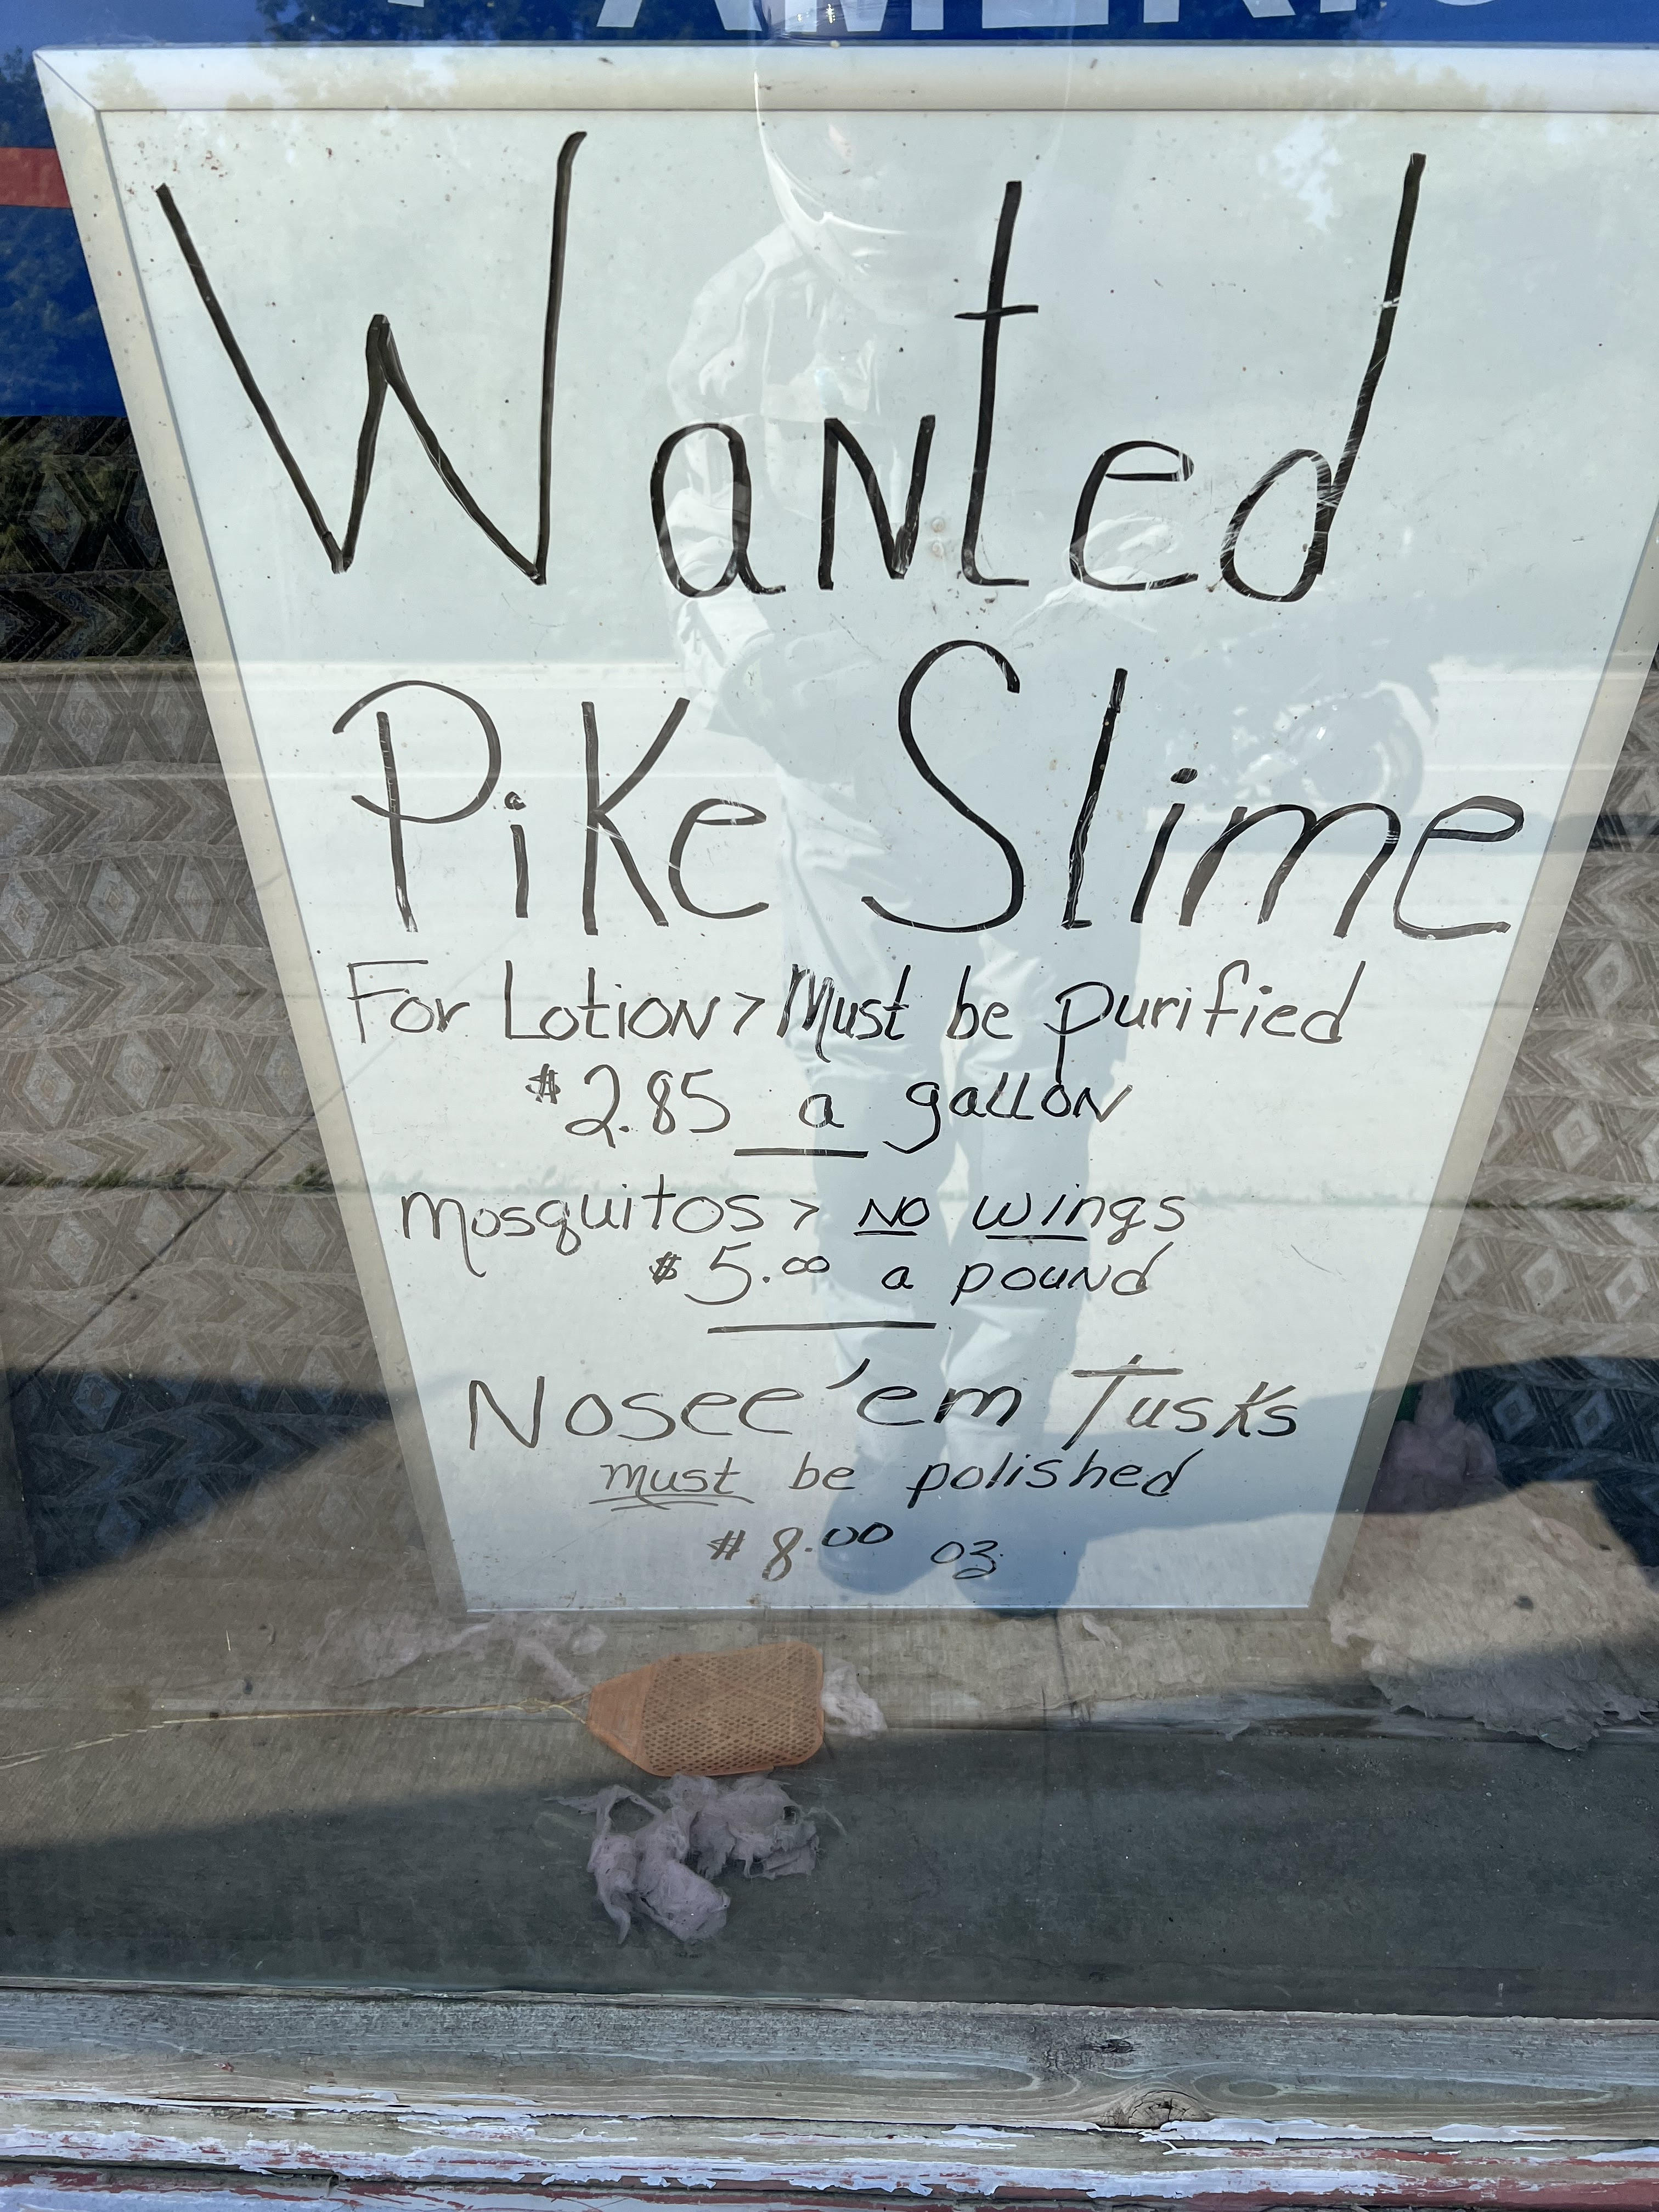 Wanted
Pike Slime
For Lotion > Must be purified
$2.85 a gallon
Mosquitos > No wings
$5.00 a pound
Nosee'em Tusks
must be polished
$8.00 oz